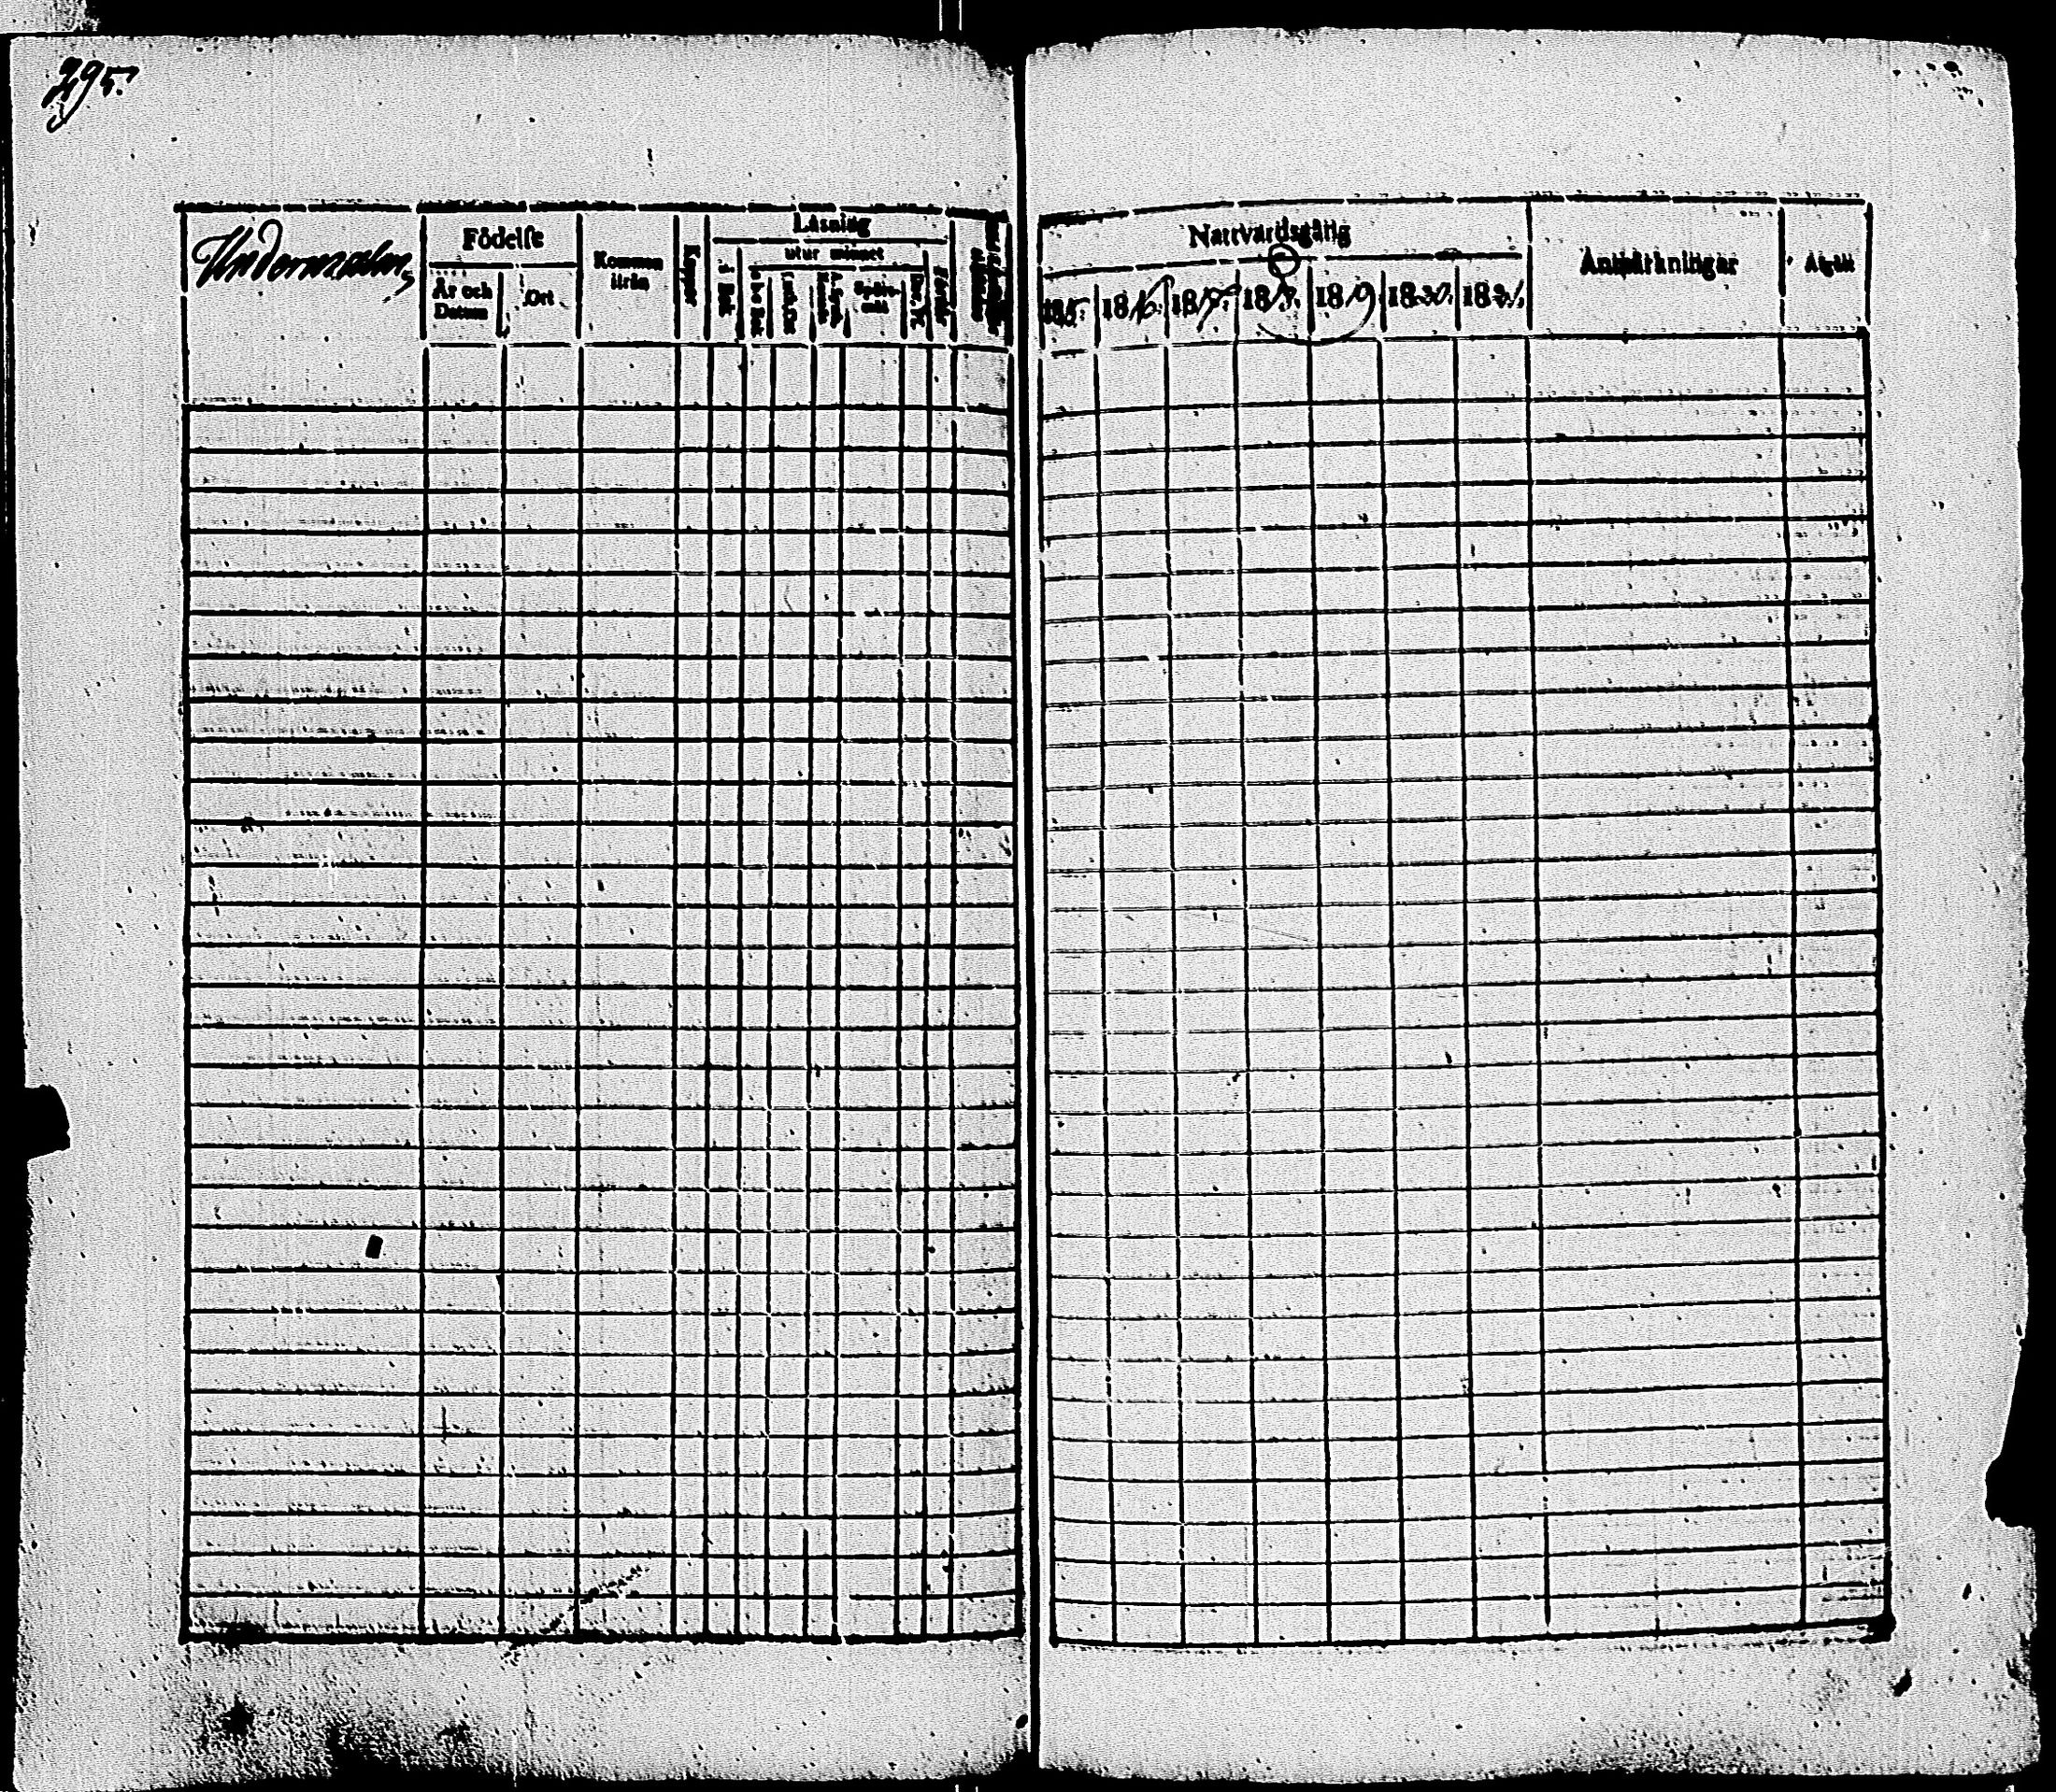 295.
Undermalm,
Födelse
År och Datum
Ort
Kommen ifrån
Koppor
Läsning
i Bok
utur minnet
Nattvardsgång
1815. 1816. 1817. 1818. 1819 1820. 1821.
Anmärkningar
Afgått